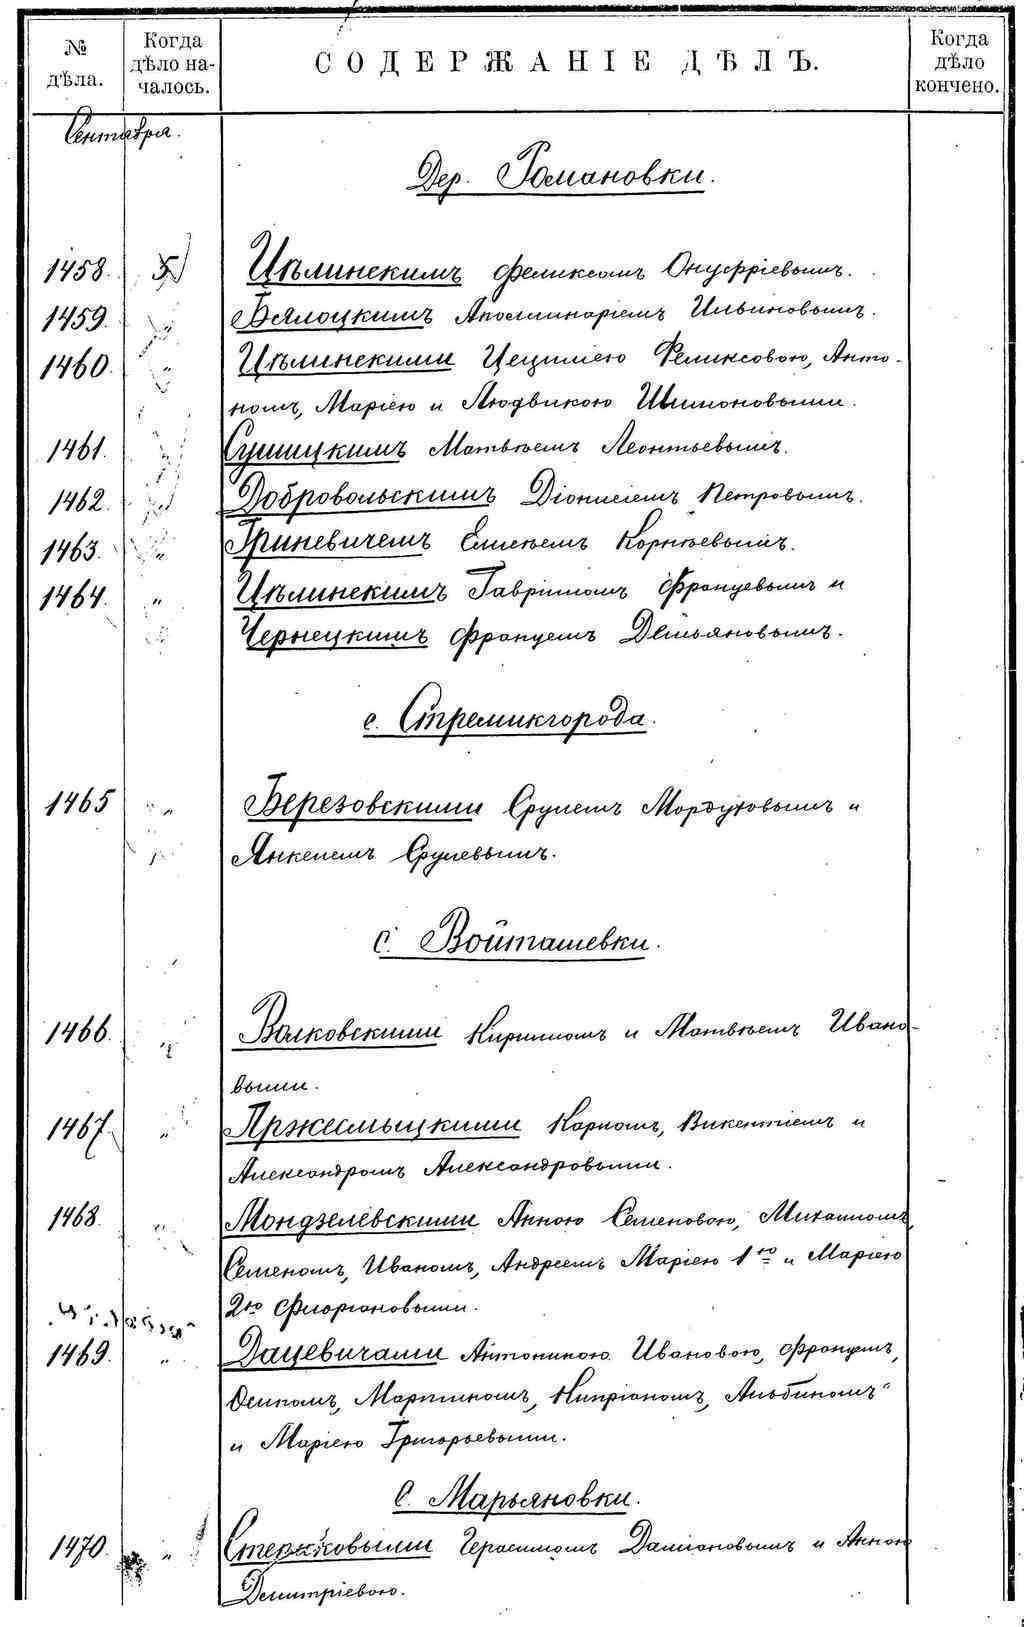 № дѣла.
Когда дѣло началось.
СОДЕРЖАНІЕ ДѢЛЪ.
Когда дѣло кончено.
Сентября.
Дер. Романовки.
1458. 5 Цѣлинскимъ Феликсомъ Онуфріевымъ.
1459. „ Бялоцкимъ Аполлинаріемъ Ильиновымъ.
1460. „ Цѣлинскими Цециліею Феликсовою, Анто-
номъ, Маріею и Людвикою Шимоновыми.
1461. „ Сушицкимъ Матвѣемъ Леонтьевымъ.
1462. „ Добровольскимъ Діонисіемъ Петровымъ.
1463. „ Гриневичемъ Елисѣемъ Корнѣевымъ.
1464. „ Цѣлинскимъ Гавріиломъ Францевымъ и
Чернецкимъ Францемъ Демьяновымъ.
с. Стремингорода.
1465 „ Березовскими Срулемъ Мордуховымъ и
Янкелемъ Срулевымъ.
С. Войташевки.
1466. „ Волковскими Кирилломъ и Матвѣемъ Ивано-
выми.
1467 „ Пржесмыцкими Карломъ, Викентіемъ и
Александромъ Александровыми.
1468. „ Мондзелевскими Анною Семеновою, Михаиломъ,
Семеномъ, Иваномъ, Андреемъ Маріею 1ю и Маріею
2ю Флоріановыми.
1469. „ Дацевичами Антониною Ивановою, Францемъ,
Осипомъ, Мартиномъ, Кипріаномъ, Альбиномъ
и Маріею Григорьевыми.
С. Марьяновки.
1470. „ Герасимомъ Даміановымъ и Анною
Дмитріевою.